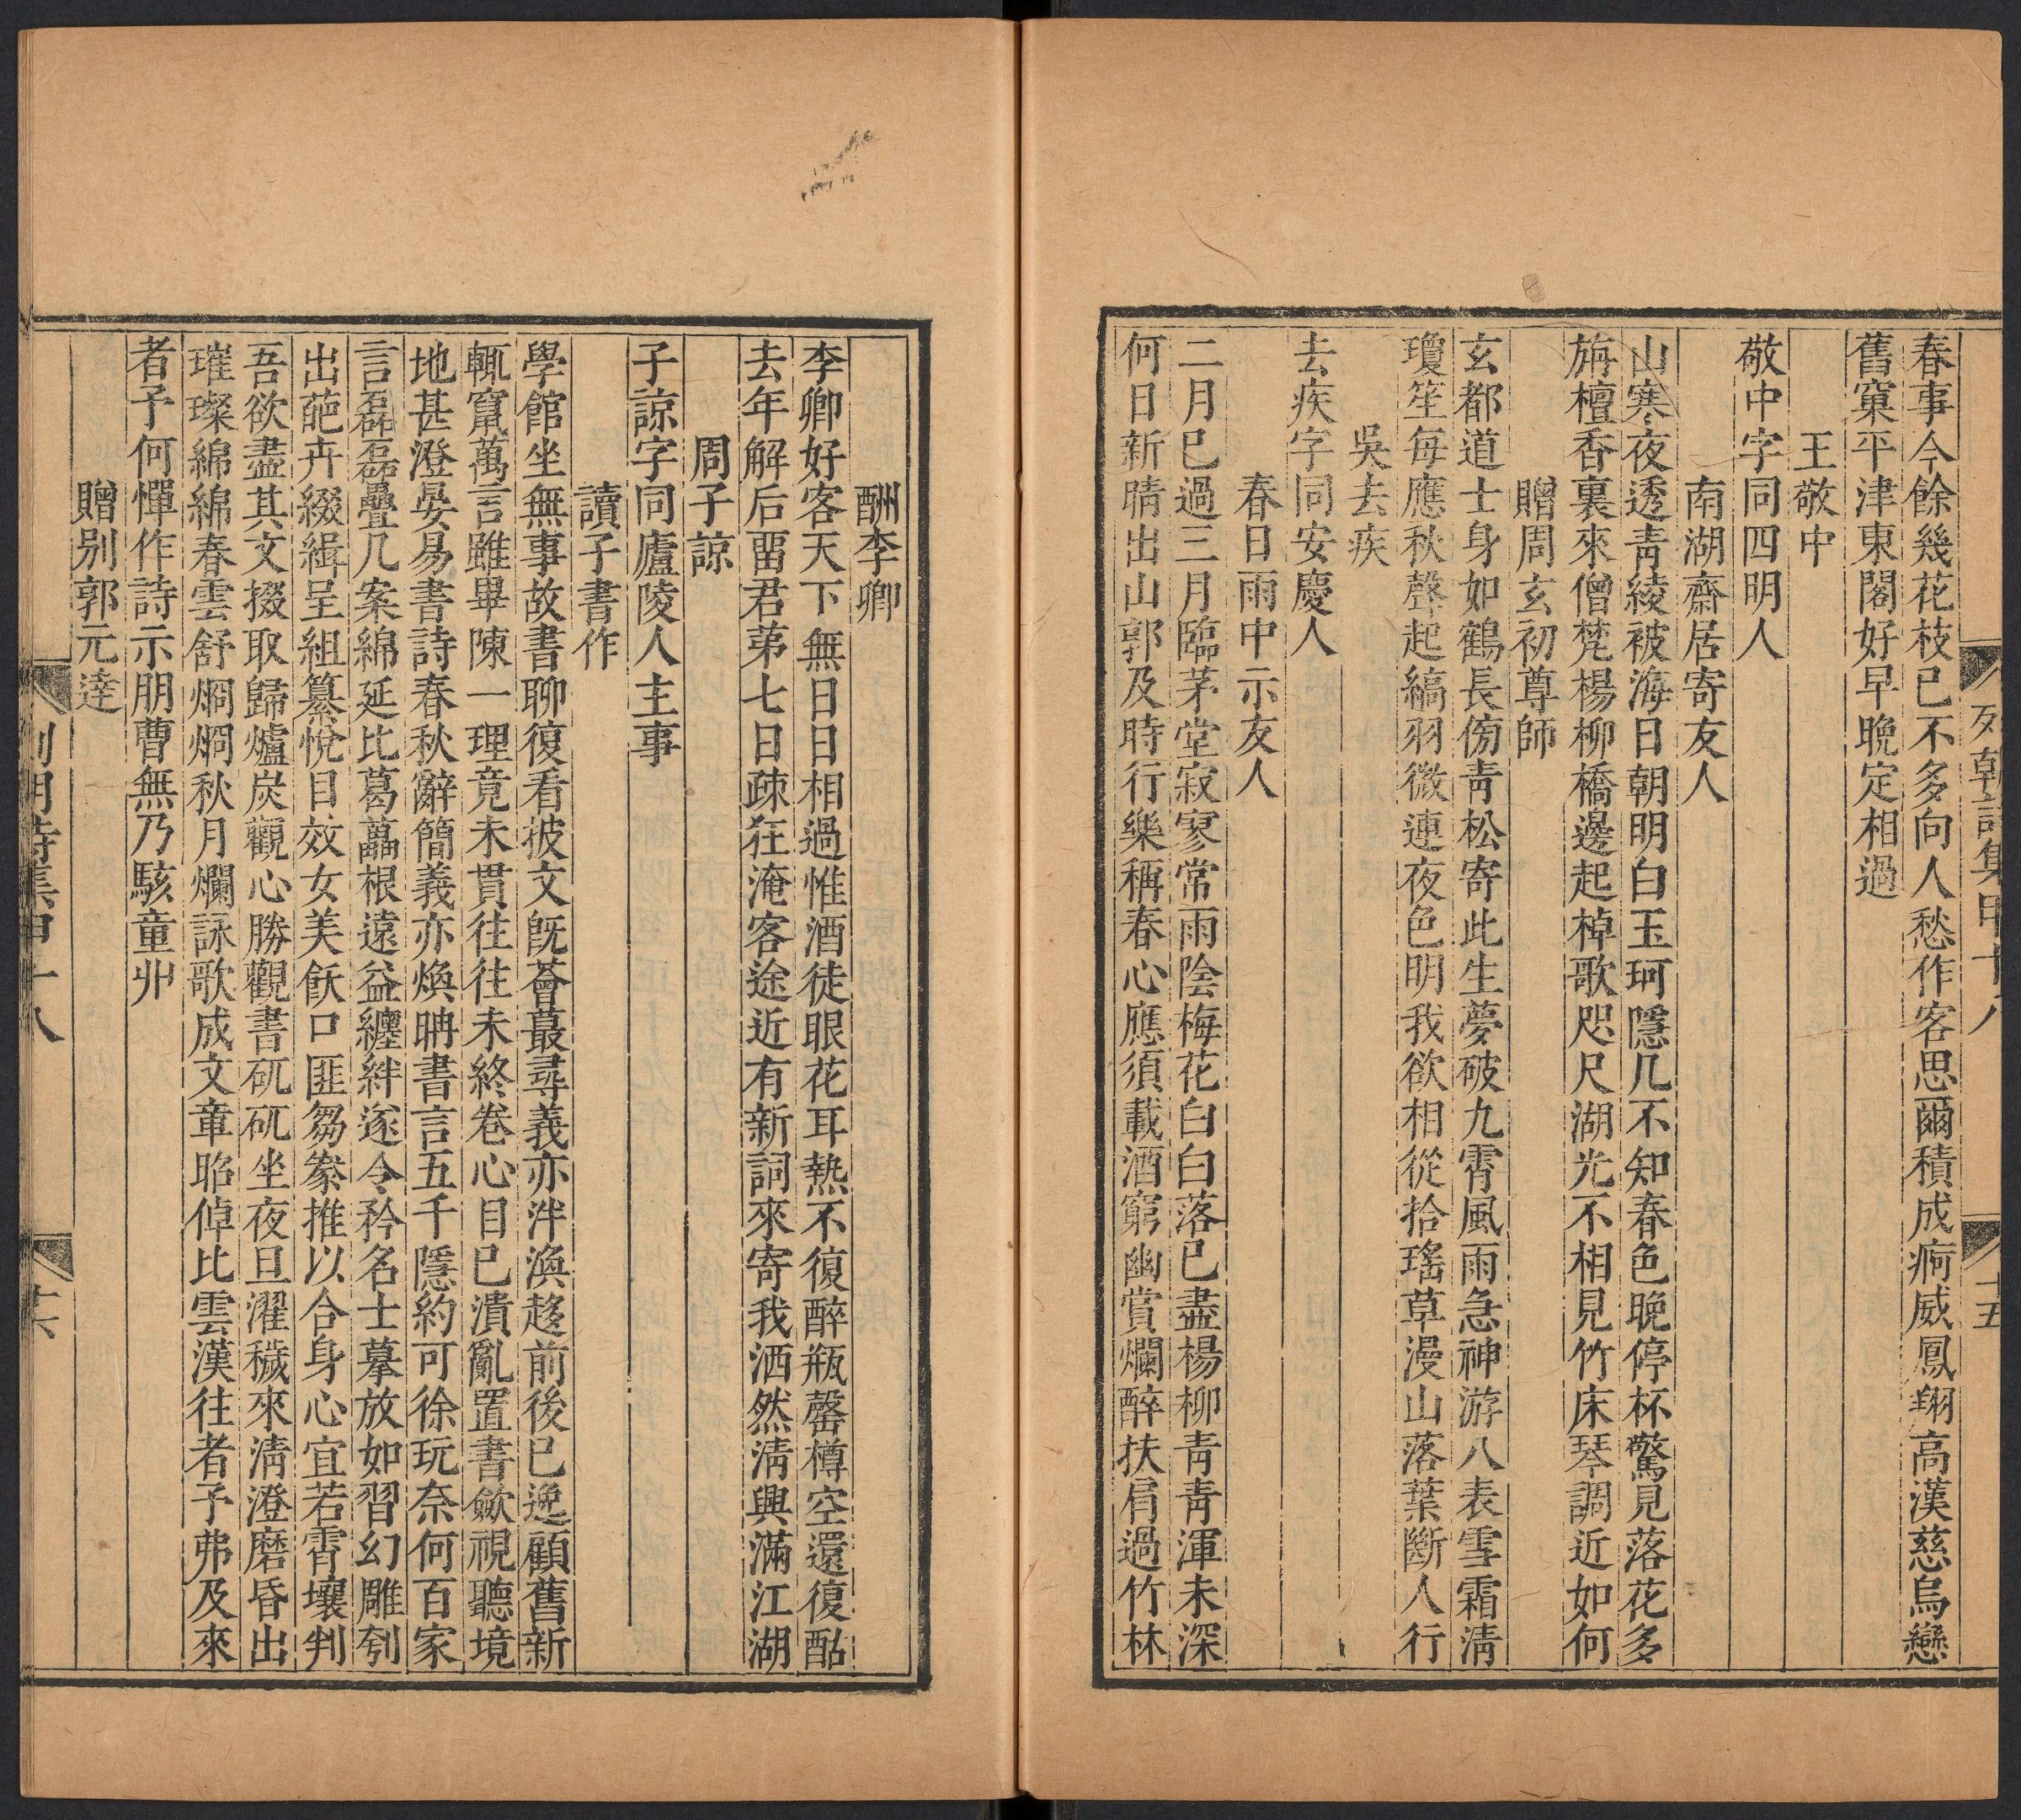 春事今餘幾花枝已不多向人愁作客思爾積成痾威鳳翔高漢慈烏戀
舊窠平津東閣好早晚定相過
王敬中
敬中字同四明人
南湖齋居寄友人
山寒夜透青綾被海日朝明白玉珂隱几不知春色晚停杯驚見落花多
旃檀香裏來僧梵楊柳橋邊起棹歌咫尺湖光不相見竹床琴調近如何
贈周玄初尊師
玄都道士身如鶴長傍青松寄此生夢破九霄風雨急神游八表雪霜清
瓊笙每應秋聲起縞羽微連夜色明我欲相從拾瑤草漫山落葉斷人行
吳去疾
去疾字同安慶人
春日雨中示友人
二月已過三月臨茅堂寂寥常雨陰梅花白白落已盡楊柳青青渾未深
何日新晴出山郭及時行樂稱春心應須載酒窮幽賞爛醉扶肩過竹林
列朝詩集甲十八
十五
酬李卿
李卿好客天下無日日相過惟酒徒眼花耳熱不復醉瓶罄樽空還復酤
去年解后畱君苐七日疎狂淹客途近有新詞來寄我洒然淸興滿江湖
周子諒
子諒字同廬陵人主事
讀子書作
學館坐無事故書聊復看披文旣薈蕞尋義亦泮渙趍前後已逸顧舊新
輒竄萬言雖畢陳一理竟未貫往往未終卷心目已潰亂置書歛視聽境
地甚澄晏易書詩春秋辭簡義亦煥聃書言五千隱約可徐玩奈何百家
言磊磊疊几案綿延比葛藟根遠益纏絆遂令矜名士摹放如習幻雕刳
出葩卉綴緝呈組纂悅目效女美飫口匪芻豢推以合身心宜若霄壤判
吾欲盡其文掇取歸爐炭觀心勝觀書矹矹坐夜旦濯穢來淸澄磨昏出
璀璨綿綿春雲舒烱烱秋月爛詠歌成文章昭倬比雲漢往者予弗及來
者予何憚作詩示朋曹無乃駭童丱
贈別郭元達
列朝詩集甲十八
十六